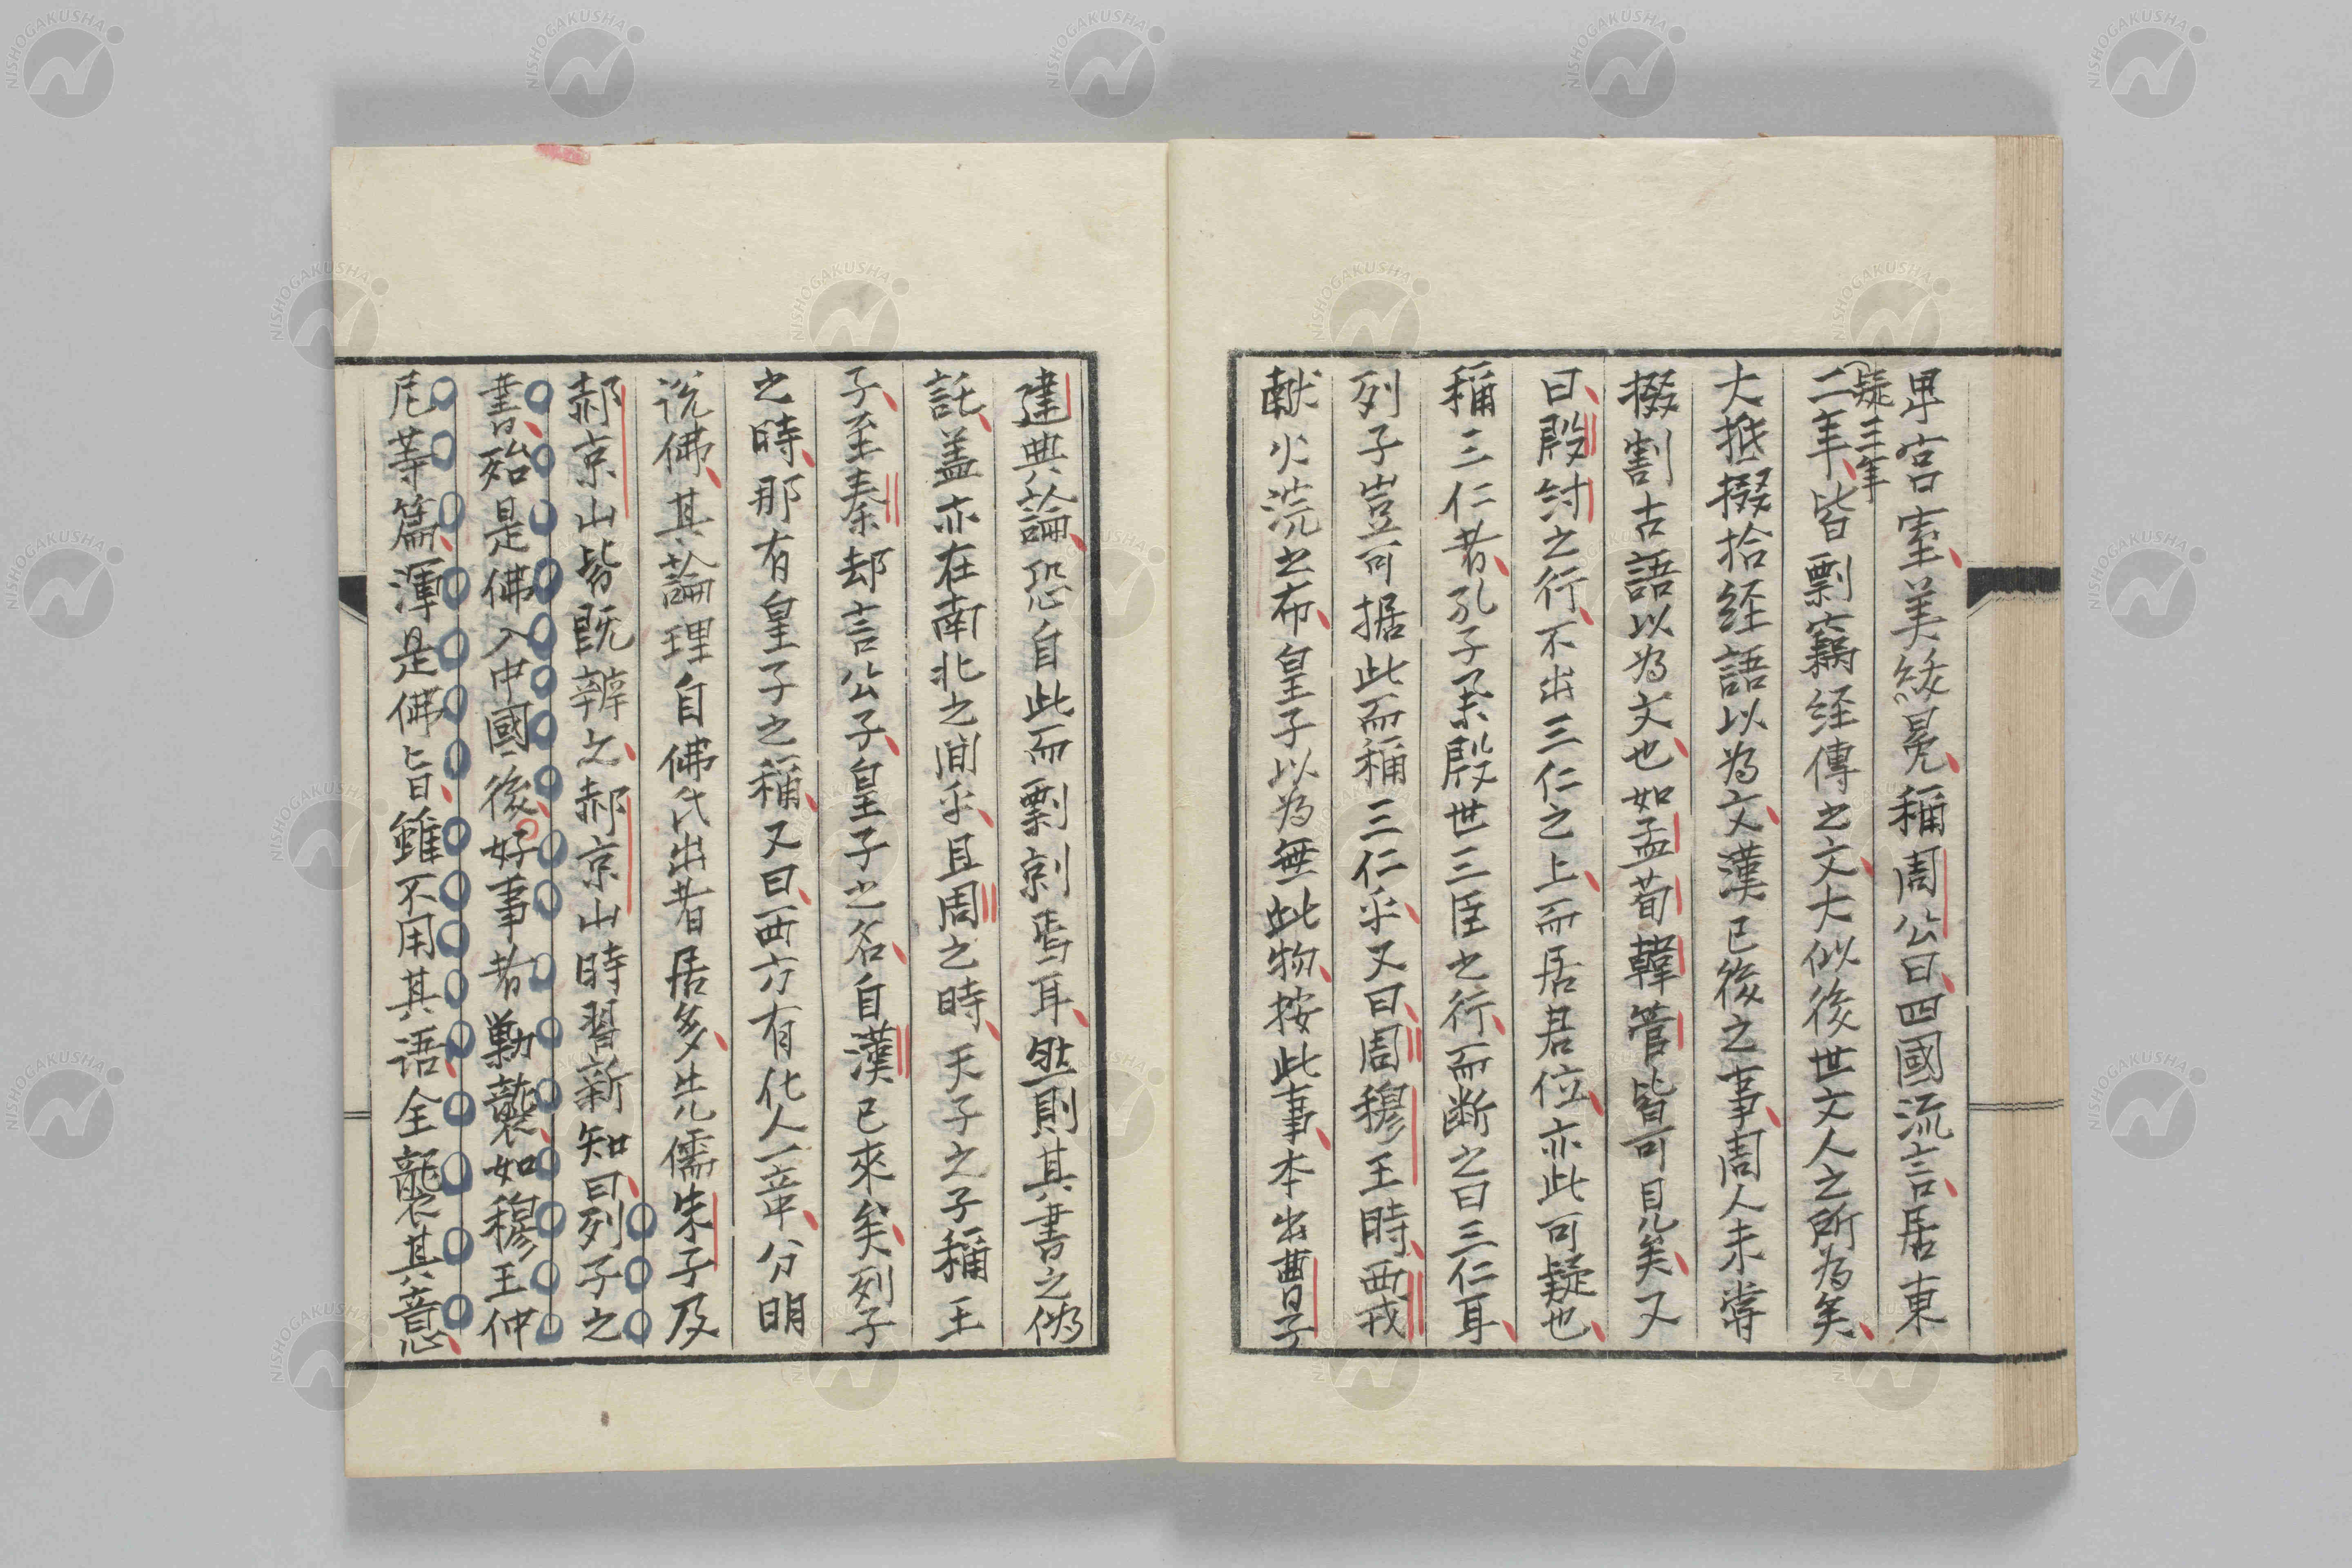 卑宮室美紱冕稱周公曰四國流言居東
疑三年
二年皆剽竊経傳之文大似後世文人之所為矣
大抵掇拾経語以為文漢已後之事周人未甞
掇割古語以為文也如孟荀韓管皆可見矣又
曰殷紂之行不出三仁之上而居君位亦此可疑也
稱三仁者孔子条殷世三臣之行而断之曰三仁耳
列子豈可据此而稱三仁乎又曰周穆王時西戎
献火浣之布皇子以為無此物按此事本出曹子
建典論恐自此而剽剥焉耳然則其書之偽
託盖亦在南北之間乎且周之時天子之子稱王
子至秦却言公子皇子之名自漢已來矣列子
之時那有皇子之稱又曰西方有化人一章分明
说佛其論理自佛氏出者居多先儒朱子及
郝京山皆既辨之郝京山時習新知曰列子之
書殆是佛入中國後好事者勦襲如穆王仲
尼等篇渾是佛旨雖不用其语全襲其意
NISHOGAKUSHA